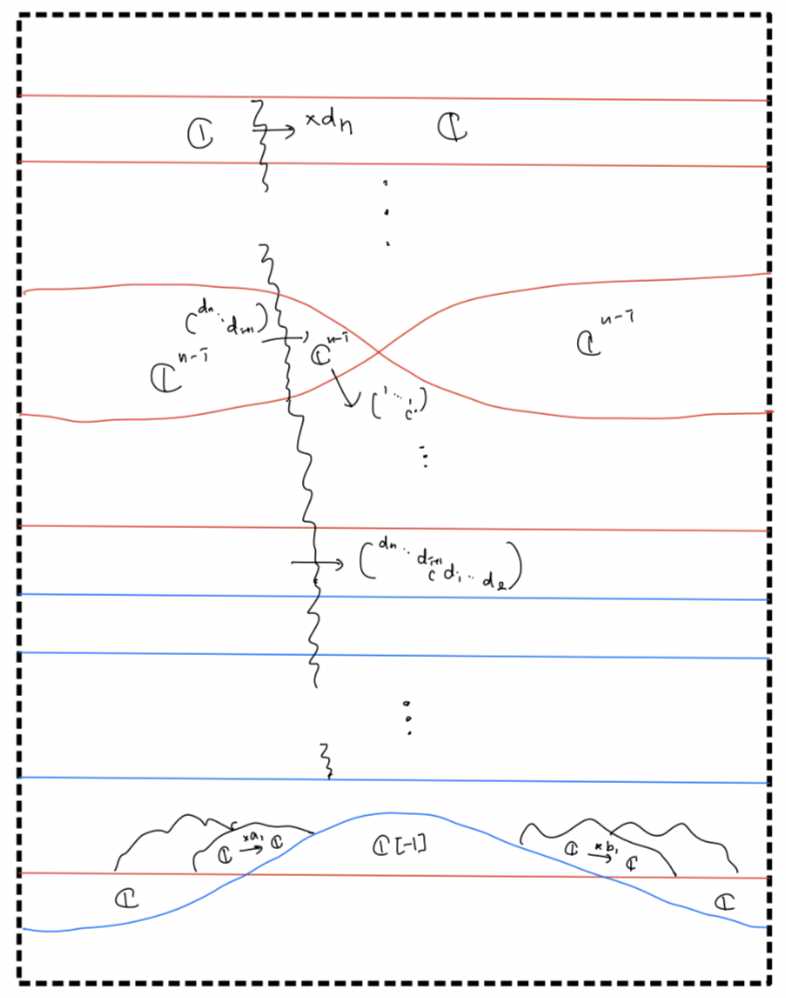 ℂ → ×dₙ ℂ
(dₙ ⋱ dᵢ₊₁)
ℂⁿ⁻ⁱ → ℂⁿ⁻ⁱ
ℂⁿ⁻ⁱ
(1 ⋱ 1 c)
(dₙ ⋱ dᵢ₊₁ c dᵢ ⋱ d₂)
ℂ ×a₁ → ℂ
ℂ[-1]
ℂ ×b₁ → ℂ
ℂ
ℂ